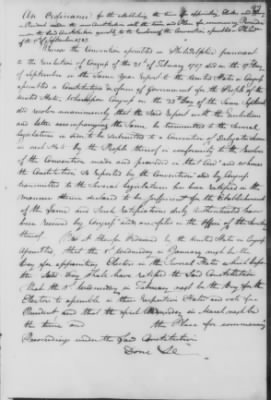 An Ordinance for the establishing the time for appointing Electors and
under the said Constitution agreeably to the resolution of the Convention
of the 17 of September 1787
Whereas the Convention assembled in Philadelphia pursuant
to the resolution of Congress of the 21st of February 1787 did on the 17th day
of September in the same Year report to the United States in Congress
assembled a Constitution of Government for the People of the
United States, Whereupon Congress on the 28th day of the same September
did resolve unanimously that the said Report with the resolutions
and letter accompanying the same be transmitted to the several
legislatures in order to be submitted to a Convention of Delegates chosen
in each State by the People thereof in conformity to the resolves
of the Convention made and provided in that Case and whereas
the Constitution so reported by the Convention and by Congress
transmitted to the several legislatures has been ratified in the
manner therein declared to be sufficient for the Establishment
of the same and such Ratifications duly authenticated have
been received by Congress and are filed in the Office of the
therefore
Be it therefore Ordained by the United States in Congress
assembled, that the Wednesday in January next be the
day for appointing Electors in the several States which before
the said day shall have ratified the said Constitution
That the Wednesday in February next be the day for the
Electors to assemble in their respective States and vote for a
President and that the first Wednesday in March next be
the time and the Place for commencing
Proceedings under the said Constitution
Done &c